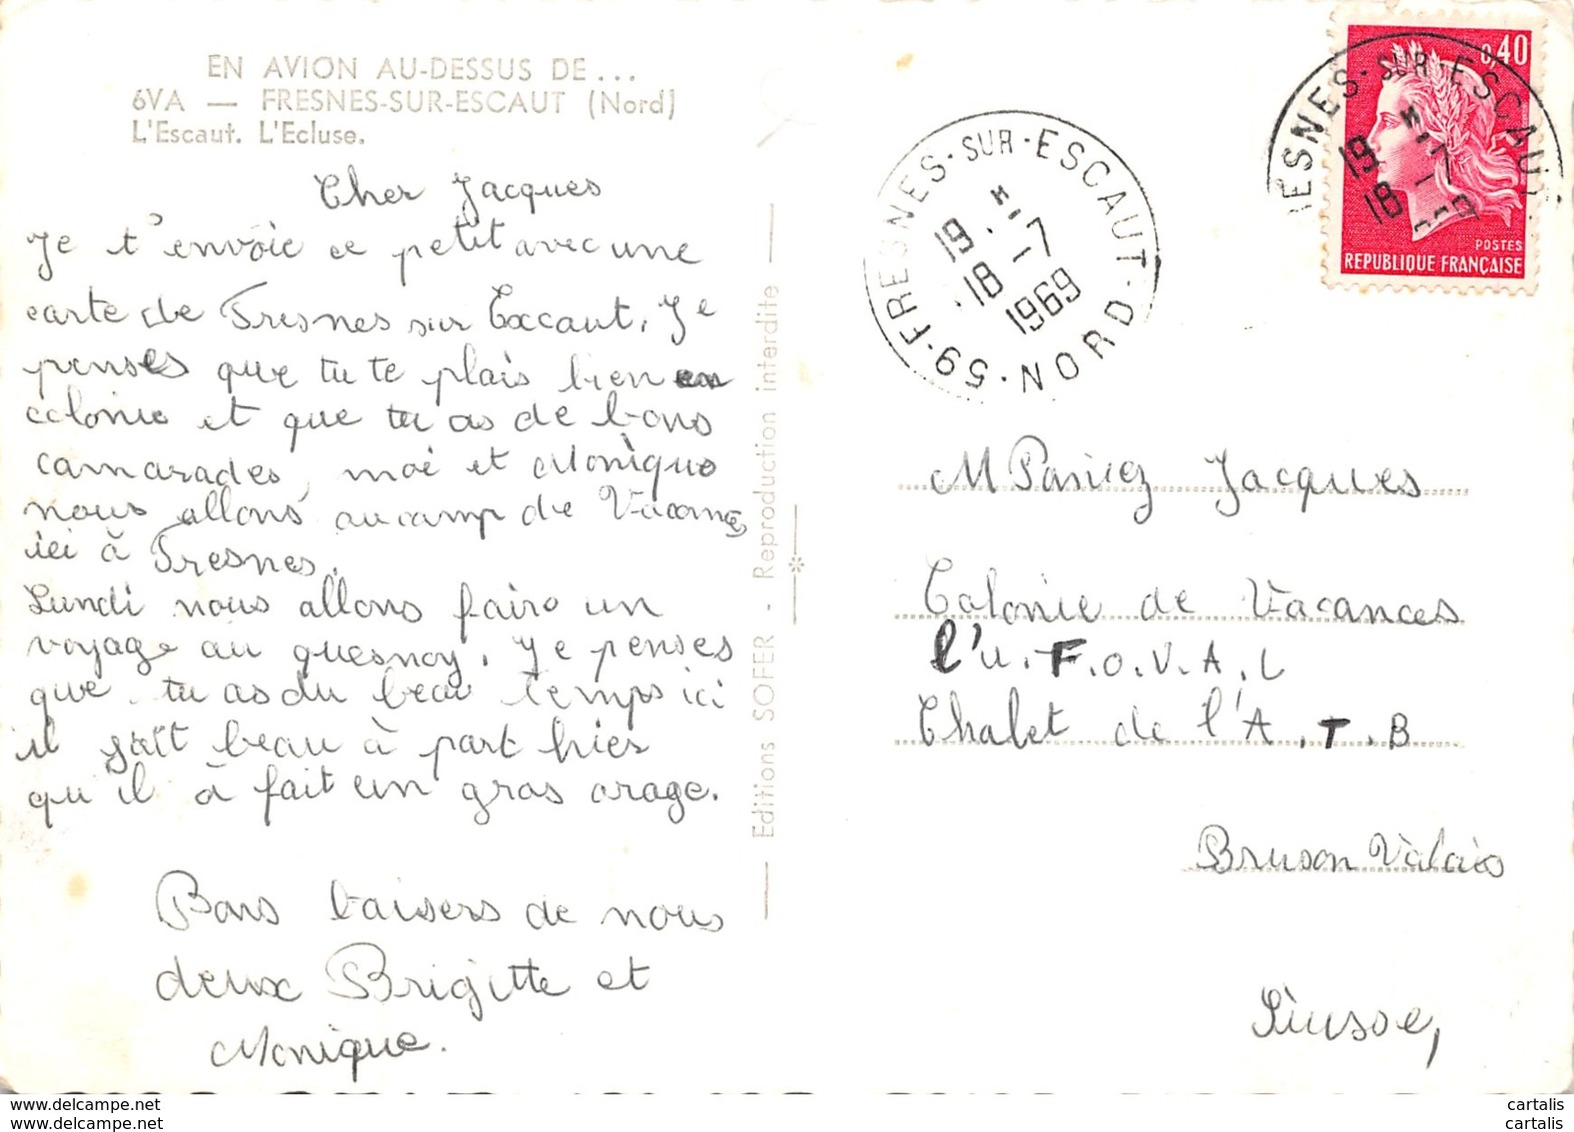 EN AVION AU-DESSUS DE...
6VA — FRESNES-SUR-ESCAUT (Nord)
L'Escaut. L'Ecluse.
Cher Jacques
Je t'envoie ce petit avec une
carte de Fresnes sur Excaut. Je
penses que tu te plais bien en
colonie et que tu as de bons
camarades, moi et Monique
nous allons au camp de Vacances
ici à Fresnes.
Lundi nous allons faire un
voyage au quesnoy. Je penses
que tu as du beau temps ici
il fait beau à part hies
qu'il à fait un gros orage.
Bons baisers de nous
deux Brigitte et
Monique.
Editions SOFER - Reproduction interdite
59 - FRESNES-SUR-ESCAUT - NORD
19 H
18-7
1969
ESNES-SUR-ESCAUT
19 H
18-7
0,40
POSTES
REPUBLIQUE FRANÇAISE
M Jacques
Colonie de Vacances
l'U.F.O.V.A.L
Chalet de l'A.T.B
Bruson Valais
Suisse,
www.delcampe.net
www.delcampe.net
cartalis
cartalis